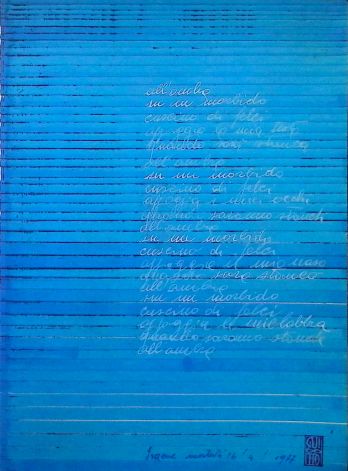 all'ombra
su un morbido
cuscino di felci
appoggio la mia
quando sarò stanca
all'ombra
su un morbido
cuscino di felci
appoggio i miei occhi
quando saranno stanchi
all'ombra
su un morbido
cuscino di felci
appoggio il mio naso
quando sarà stanco
all'ombra
su un morbido
cuscino di felci
appoggio le mie labbra
quando saranno stanche
all'ombra
1972